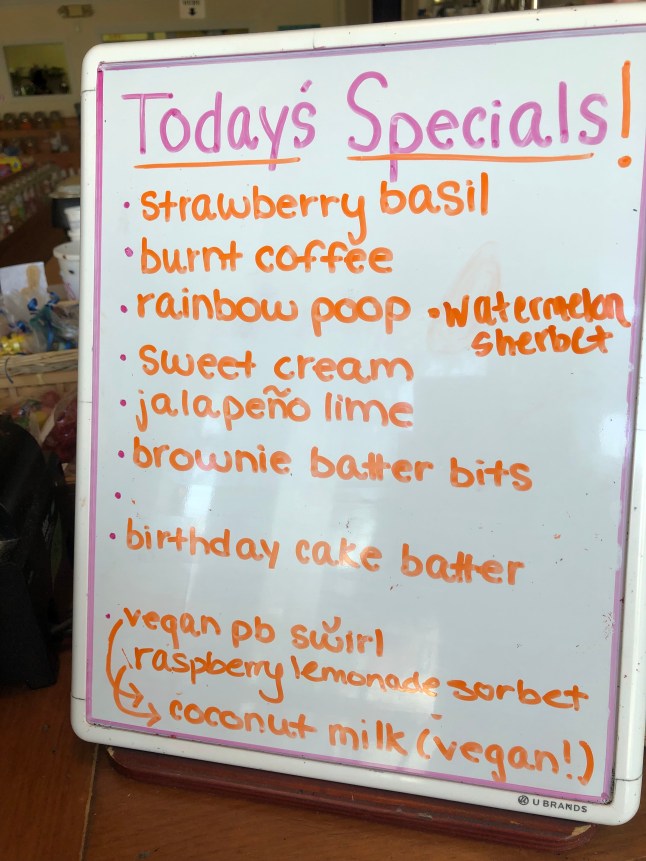 Today's Specials!
• strawberry basil
• burnt coffee
• rainbow poop • watermelon
sherbet
• sweet cream
• jalapeño lime
• brownie batter bits
•
• birthday cake batter
• vegan pb swirl
raspberry lemonade sorbet
coconut milk (vegan!)
U BRANDS